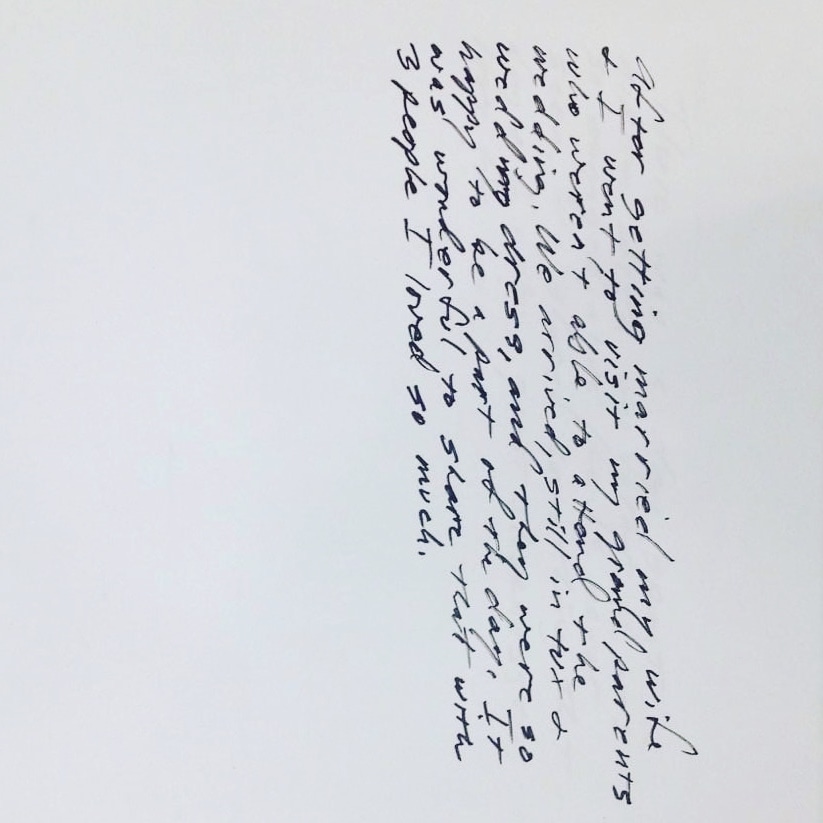 After getting married my wife
& I went to visit my grandparents
who weren't able to attend the
wedding. We arrived, still in tux &
wedding dress, and they were so
happy to be a part of the day. It
was wonderful to share that with
3 people I loved so much.